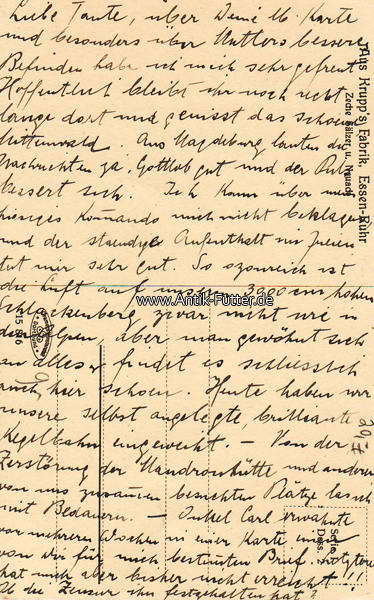 Liebe Tante, über Deine lb. Karte
und besonders über Mutters besseres
Befinden habe ich mich sehr gefreut
Hoffentlich bleibt ihr noch recht
lange dort und geniesst das schoene
Mittenwald. Aus Magdeburg lauten die
Nachrichten ja, Gottlob gut und der Puls
bessert sich. Ich kann über mein
hiesiges Kommando mich nicht beklagen
und der staendige Aufenthalt im Freien
tut mir sehr gut. So ozonreich ist
die Luft auf unserem 3900 cm hohen
Schlackenberg zwar nicht wie in
den Alpen, aber man gewöhnt sich
an alles, findet es schliesslich
auch hier schoen. Heute haben wir
unsere selbst angelegte, brillante
Kegelbahn eingeweiht. – Von der
Zerstörung der Mandronhütte und anderer
von uns zusammen besuchten Plätze las ich
mit Bedauern. – Onkel Carl erwähnte
vor mehreren Wochen in einer Karte einen
von Dir für mich bestimten Brief.
hat mich aber bisher nicht erreicht!!!
Ob die Zensur ihn festgehalten hat?
Aus Krupp's Fabrik, Essen-Ruhr
Zeche Sälzer u. Neuack
www.Antik-Futter.de
Serie
Dess.